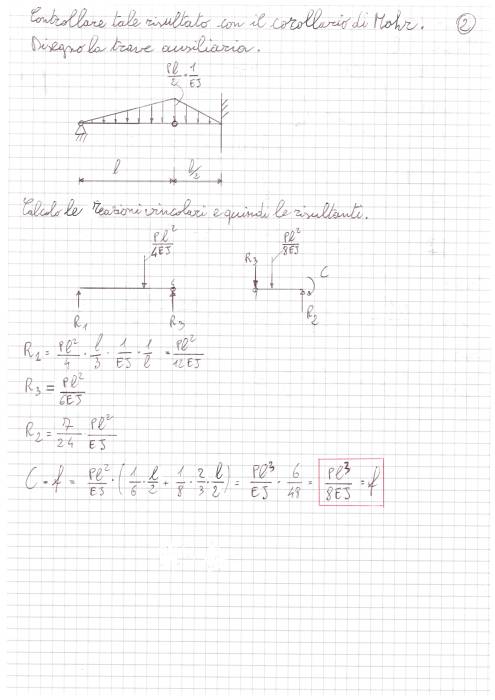 Controllare tale risultato con il corollario di Mohr. 2
Disegno la trave ausiliaria.
Pl/2 · 1/EJ
l l/2
Calcolo le reazioni vincolari e quindi le risultanti.
Pl²/4EJ R₃ Pl²/8EJ C
R₁ R₃ R₂
R₁ = Pl²/4 · l/3 · 1/EJ · 1/l = Pl²/12EJ
R₃ = Pl²/6EJ
R₂ = 7/24 · Pl²/EJ
C = f = Pl²/EJ · (1/6 · l/2 + 1/8 · 2/3 · l/2) = Pl³/EJ · 6/48 = Pl³/8EJ = f